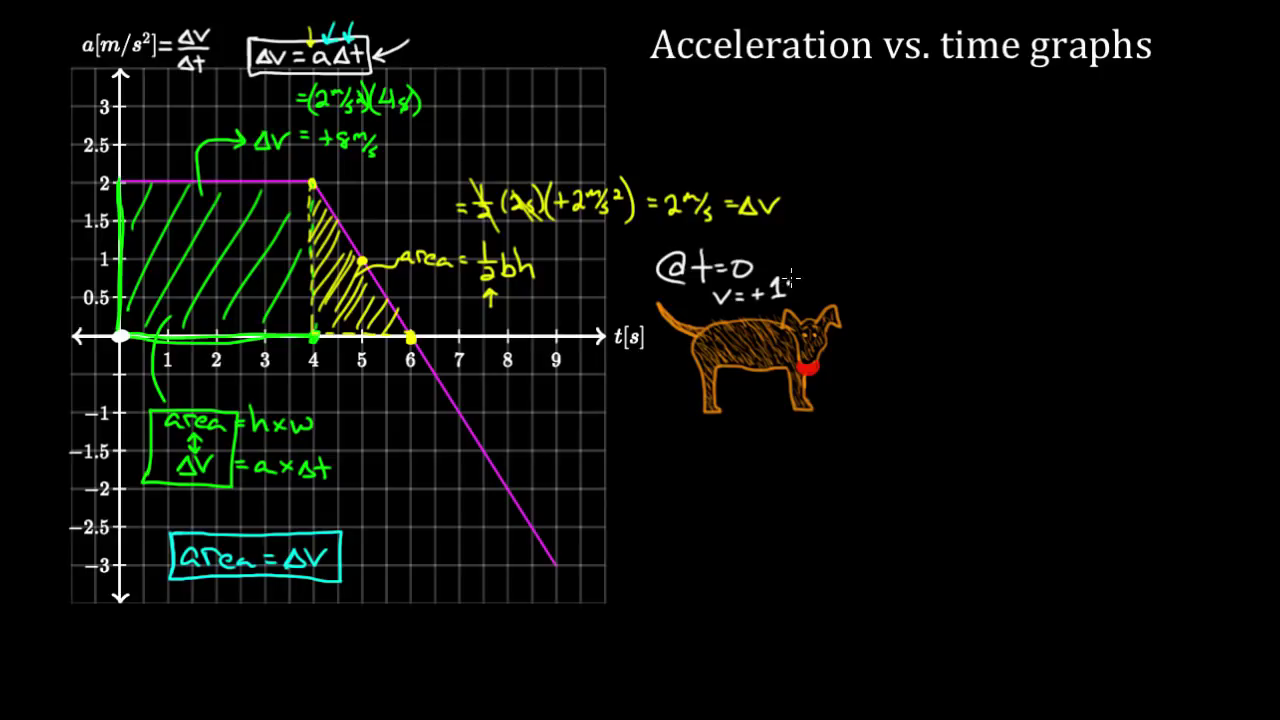 Acceleration vs. time graphs
a[m/s²]=ΔV/Δt
ΔV=aΔt
=(2m/s²)(4s)
ΔV = +8m/s
=1/2(2s)(+2m/s²)=2m/s=ΔV
area=1/2bh
@t=0
v=+1
t[s]
3
2.5
2
1.5
1
0.5
1 2 3 4 5 6 7 8 9
−1
−1.5
−2
−2.5
−3
area=h×w
ΔV=a×Δt
area=ΔV